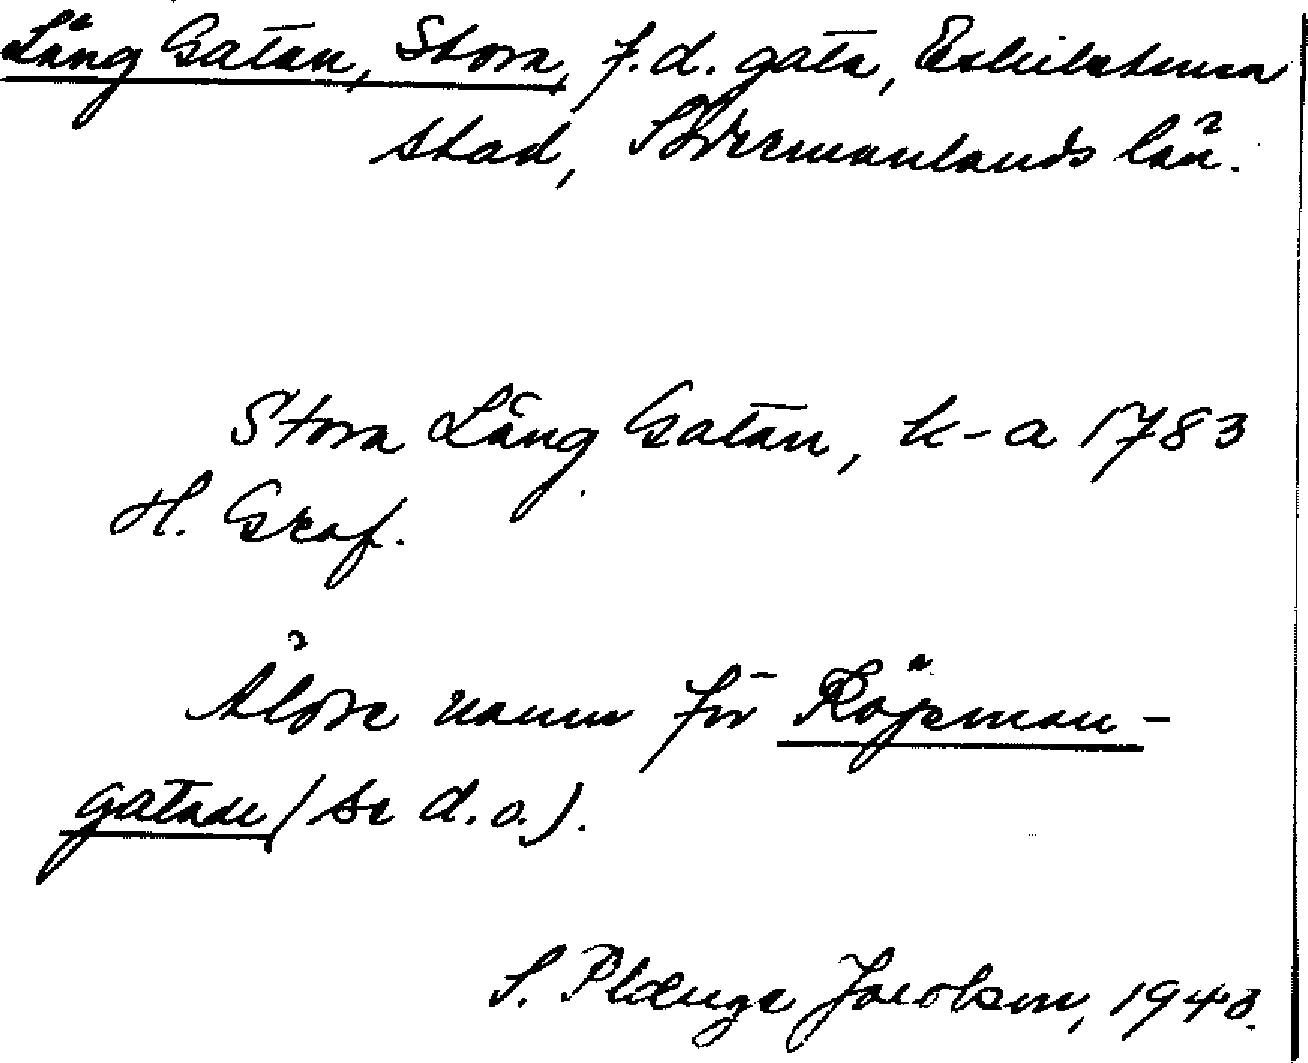 Lång Gatan, Stora, f.d. gata, Eskilstuna
stad, Södermanlands län.
Stora Lång Gatan, k-a 1783
H. Graf.
Äldre namn för Köpman-
gatan (se d.o.).
S. Plænge Jacobsen, 1940.